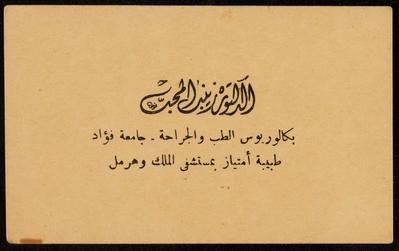 الدكتورة زينب المحب
بكالوريوس الطب والجراحة - جامعة فؤاد
طبيبة أمتياز بمستشفى الملك وهرمل